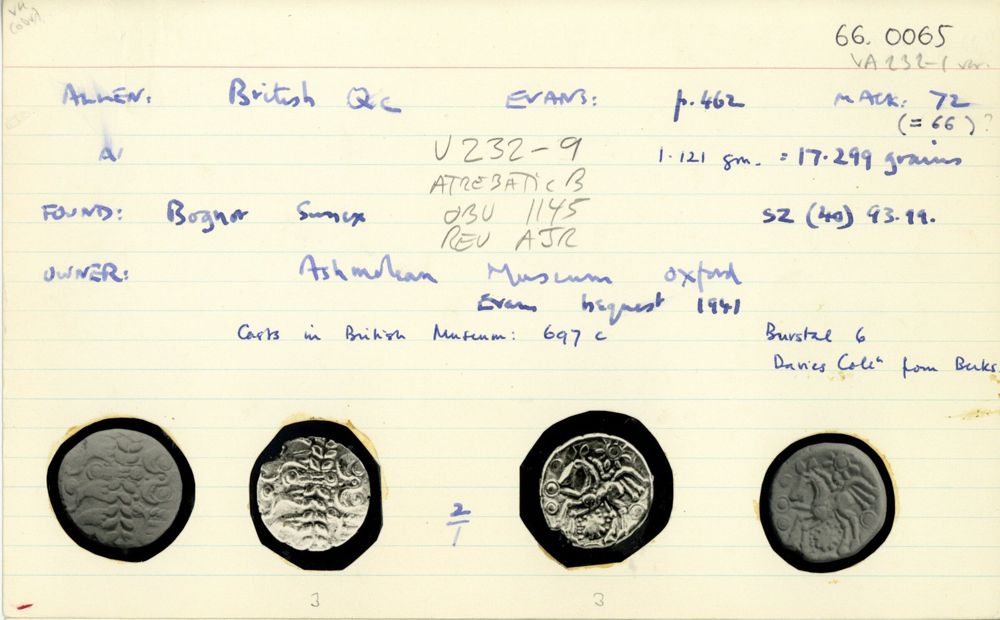 VA
(obv)
66. 0065
VA 232-1 var.
ALLEN: British Qc EVANS: p.462 MACK: 72
(= 66)?
V 232-9 1.121 gm. = 17.299 grains
ATREBATIC B
FOUND: Bognor Sussex OBV 1145 SZ (40) 93.99.
REV AJR
OWNER: Ashmolean Museum Oxford
Evans bequest 1941
Casts in British Museum: 697 c Burstal 6
Davies Colln from Berks.
2
1
3 3